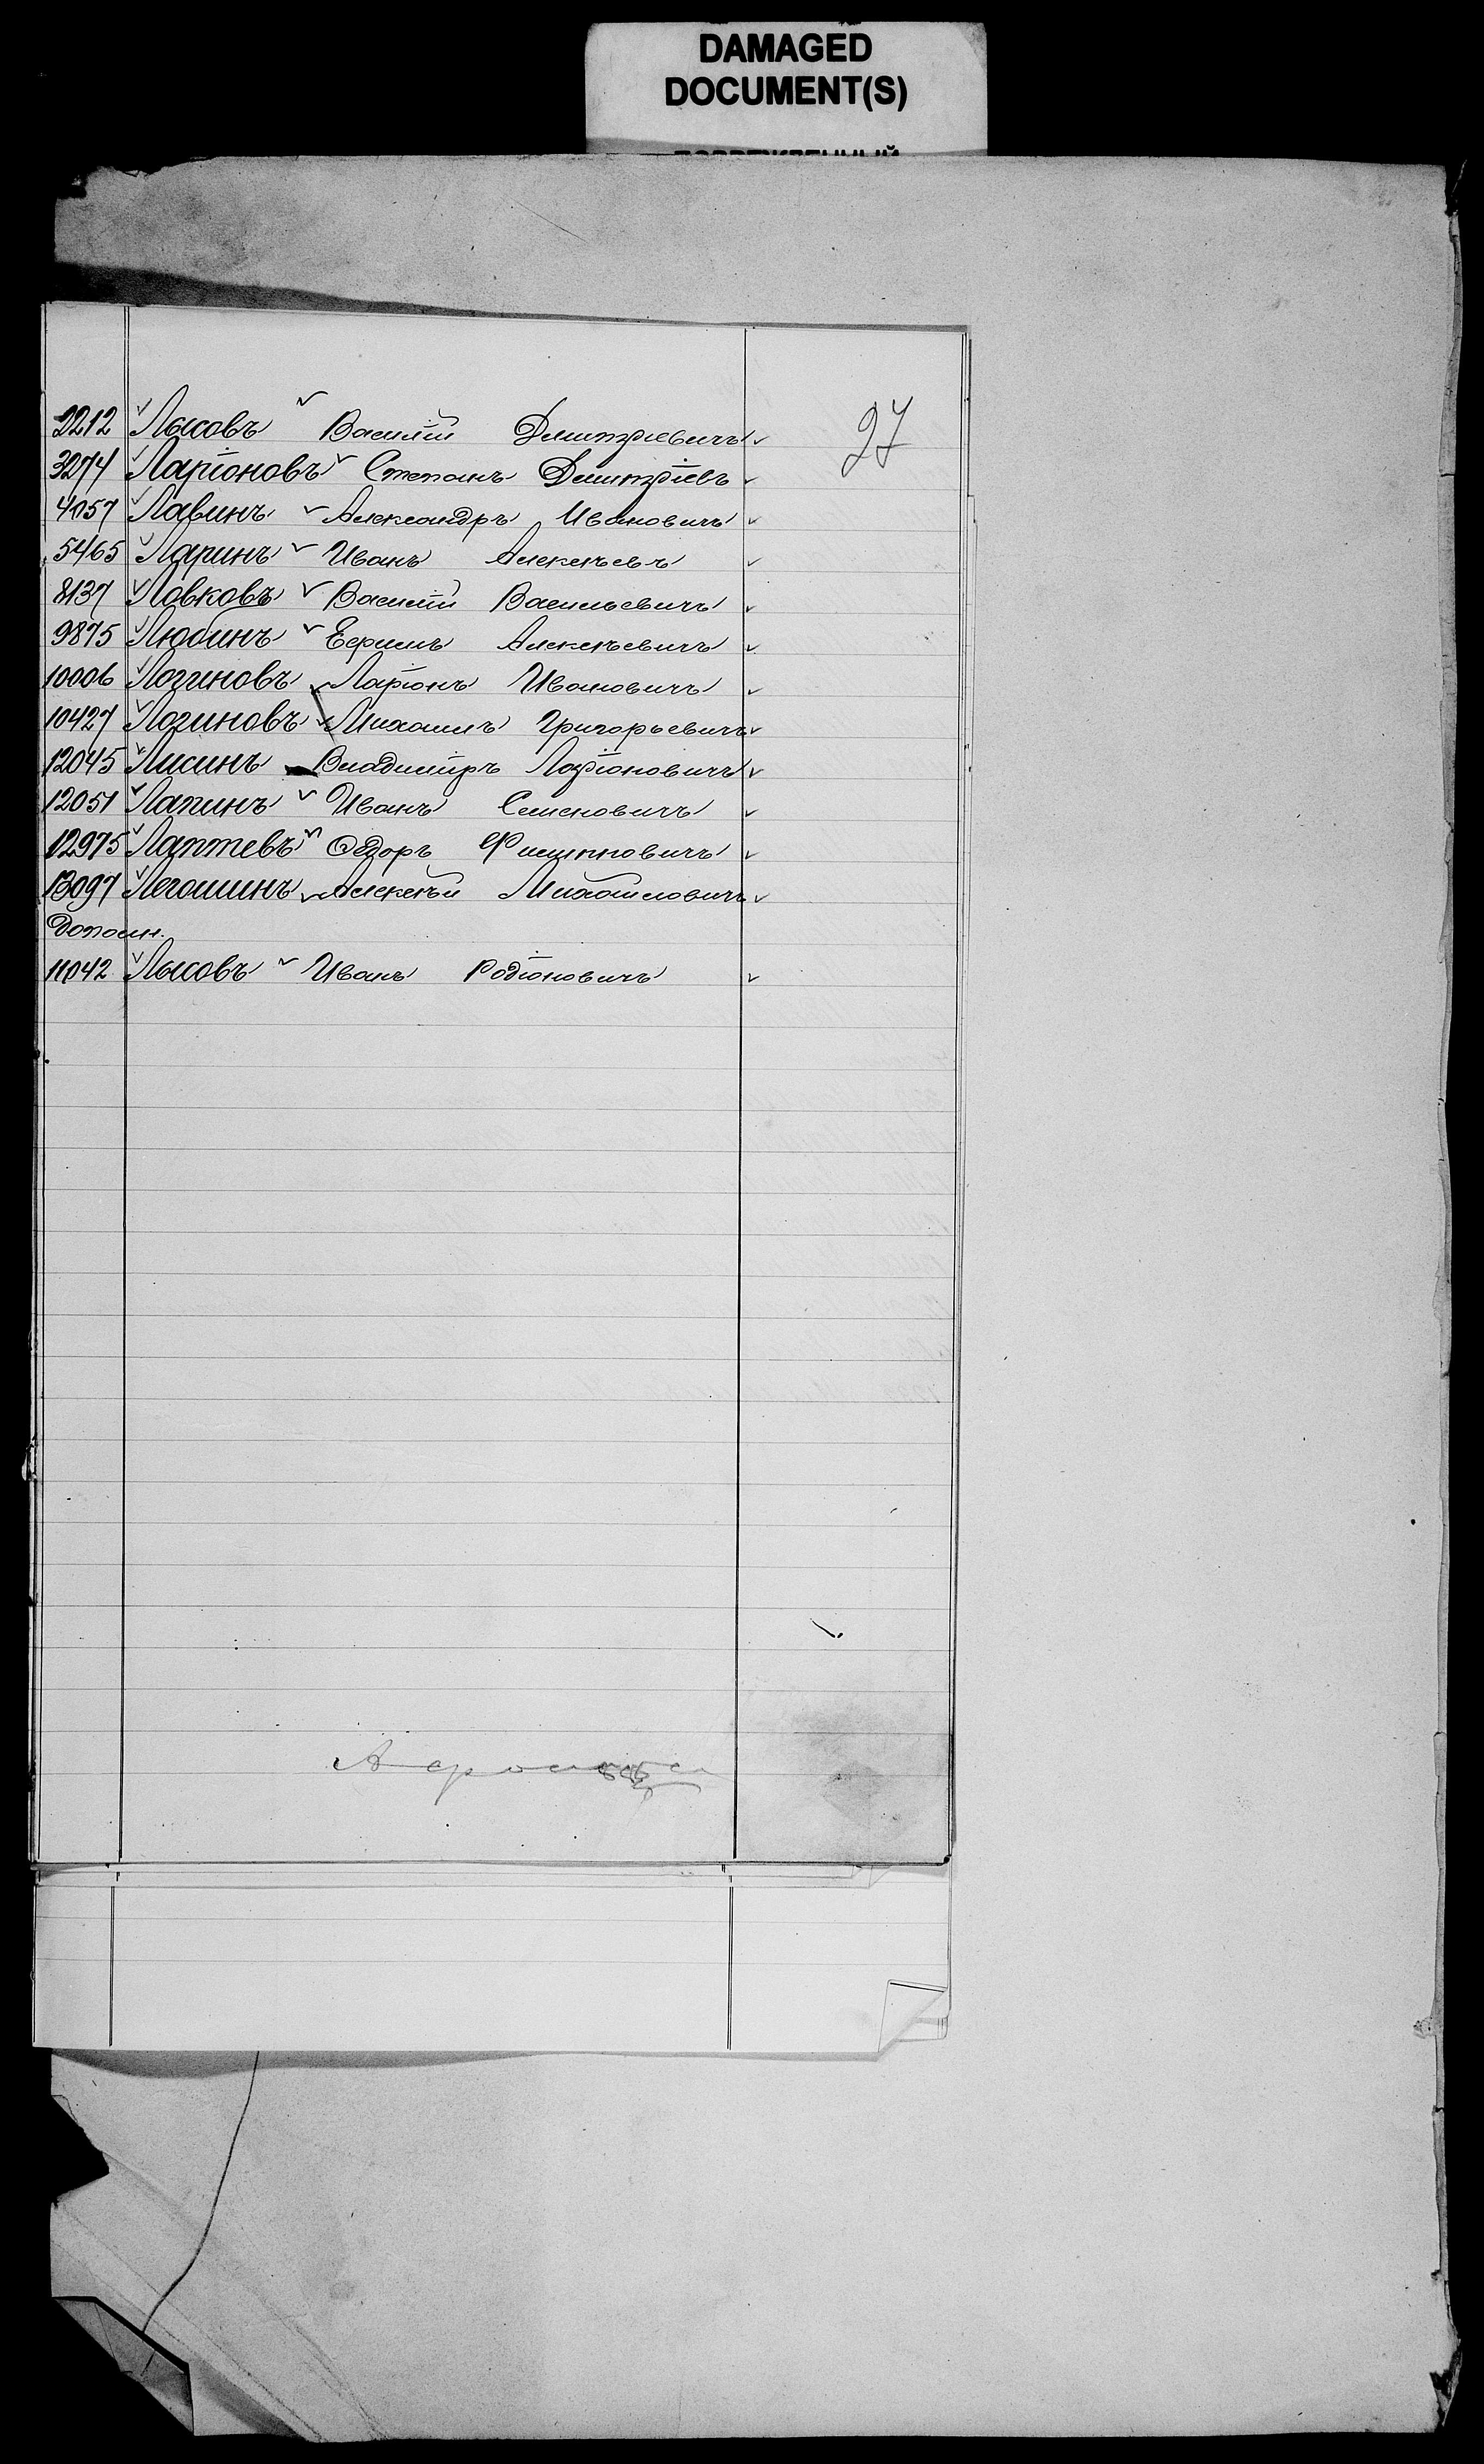 DAMAGED
DOCUMENT(S)
27
2212 Лысовъ Василій Дмитріевичъ
3274 Ларіоновъ Степанъ Дмитріевъ
4057 Лавинъ Александръ Ивановичъ
5465 Ларинъ Иванъ Алексѣевъ
8137 Ловковъ Василій Васильевичъ
9875 Любинъ Ефимъ Алексѣевичъ
10006 Логиновъ Ларіонъ Ивановичъ
10427 Логиновъ Михаилъ Григорьевичъ
12045 Лисинъ Владиміръ Ларіоновичъ
12051 Лапинъ Иванъ Семеновичъ
12975 Лаптевъ Ѳедоръ
13097 Легошинъ Алексѣй Михаиловичъ
Дополн.
11042 Лысовъ Иванъ Родіоновичъ